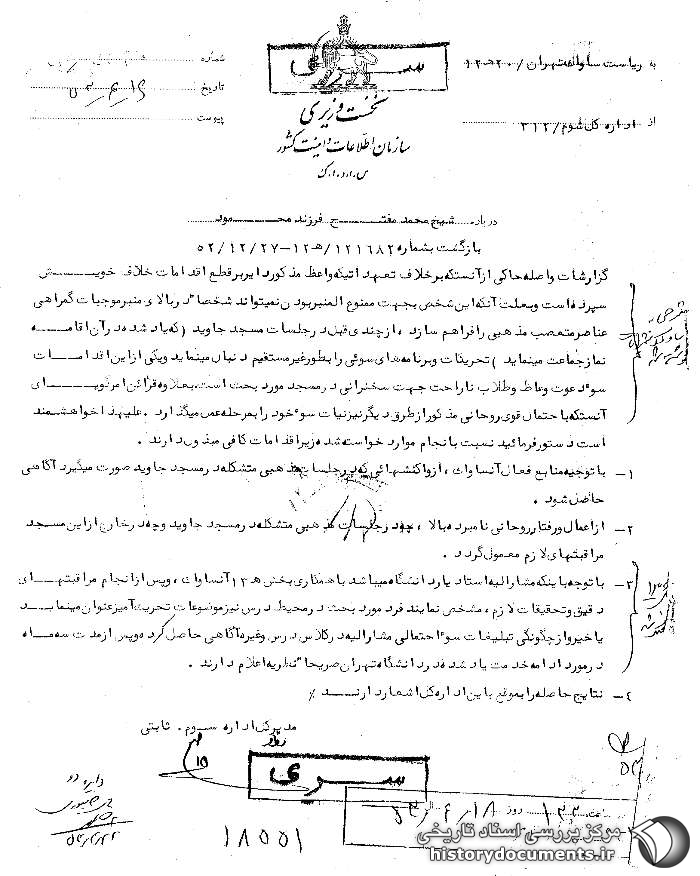 به ریاست ساواک تهران / ۲۰۰هـ۱۲
از اداره کل سوم / ۳۱۲
سری
نخست وزیری
سازمان اطلاعات و امنیت کشور
س.ا.و.ا.ک
شماره
تاریخ
پیوست
درباره شیخ محمد مفتح فرزند محمود
بازگشت بشماره ۱۲۱۶۸۲/هـ۱۲-۵۲/۱۲/۲۷
گزارشات واصله حاکی از آنستکه برخلاف تعهد اتیکه واعظ مذکور دایر بر قطع اقدامات خلاف خویش
سپرده است و بعلت آنکه این شخص بجهت ممنوع المنبر بودن نمیتواند شخصا" در بالای منبر موجبات گمراهی
عناصر متعصب مذهبی را فراهم سازد ، از چندی قبل در جلسات مسجد جاوید (که یاد شده در آن اقامه
نماز جماعت مینماید ) تحریکات و برنامه های سوئی را بطور غیر مستقیم دنبال مینماید و یکی از این اقدامات
سوء دعوت وعاظ و طلاب ناراحت جهت سخنرانی در مسجد مورد بحث است، بعلاوه قرائن امر گویای
آنستکه با احتمال قوی روحانی مذکور از طرق دیگر نیز نیات سوء خود را بمرحله عمل میگذارد . علیهذا خواهشمند
است دستور فرمائید نسبت با انجام موارد خواسته شده زیر اقدامات کافی مبذول دارند .
۱- با توجیه منابع فعال آن ساواک ، از واکنشهائی که در جلسات مذهبی متشکله در مسجد جاوید صورت میگیرد آگاهی
حاصل شود .
۲- از اعمال و رفتار روحانی نامبرده بالا ، چه در جلسات مذهبی متشکله در مسجد جاوید و چه در خارج از این مسجد
مراقبتهای لازم معمول گردد .
۳- با توجه باینکه مشارالیه استادیار دانشگاه میباشد با همکاری بخش هـ۱۳ آن ساواک ، و پس از انجام مراقبتهای
دقیق و تحقیقات لازم ، مشخص نمایند فرد مورد بحث در محیط درس نیز موضوعات تحریک آمیز عنوان مینماید
یا خیر و از چگونگی تبلیغات سوء احتمالی مشارالیه در کلاس درس و غیره آگاهی حاصل کرده و پس از مدت سه ماه
در مورد ادامه خدمت یاد شده در دانشگاه تهران صریحا" نظریه اعلام دارند .
۴- نتایج حاصله را بموقع باین اداره کل اشعار دارند ٪
مدیر کل اداره سوم . ثابتی
سری
ساعت ۱۳۳ روز ۱۸
۱۸۵۵۱
دایره دو
مرکز بررسی اسناد تاریخی
historydocuments.ir